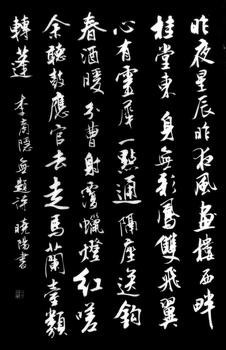 昨夜星辰昨夜風畫樓西畔
桂堂東身無彩鳳雙飛翼
心有靈犀一點通隔座送鈎
春酒暖分曹射覆蠟燈紅嗟
余聽鼓應官去走馬蘭臺類
轉蓬 李商隱無題詩 曉陽書